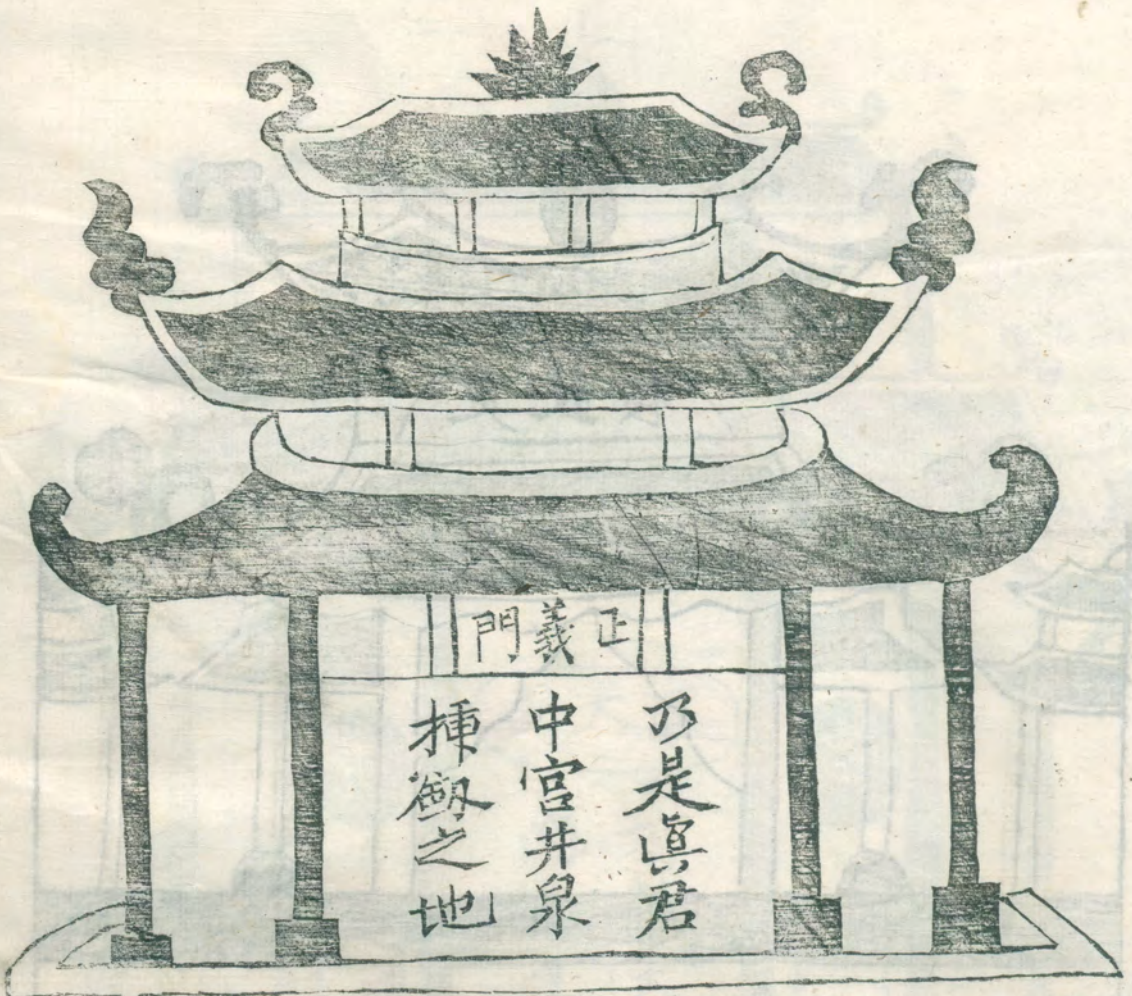 正義門
乃是眞君
中宮井泉
揮劔之地